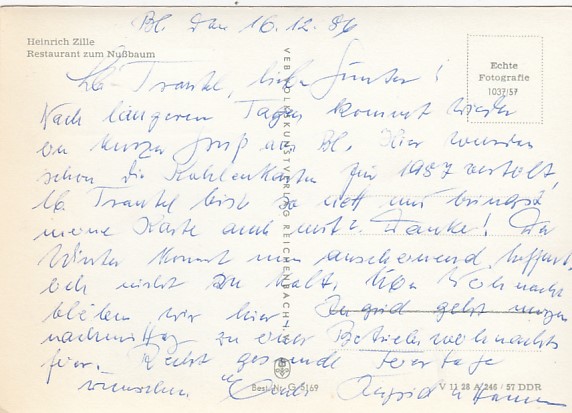 Bl. den 16.12.86
Heinrich Zille
Restaurant zum Nußbaum
Echte
Fotografie
1037/57
VEB VOLKSKUNSTVERLAG REICHENBACH i. V.
Lb. Trautel, lieber Günter!
Nach längeren Tagen kommt wieder
ein kurzer Gruß aus Bl. Hier wurden
schon die Kohlenkarten für 1987 verteilt,
lb. Trautel bist so nett und bringst
meine Karte auch mit? Danke! Der
Winter kommt nun anscheinend, hoffentl.
doch nicht zu kalt. Über Weihnacht
bleiben wir hier. Ingrid geht morgen
nachmittag zu einer Betriebsweihnachts
feier. Recht gesunde Feiertage
wünschen Euch Ingrid u.
Best.-Nr. G 5169
V 11 28 A 246 / 57 DDR